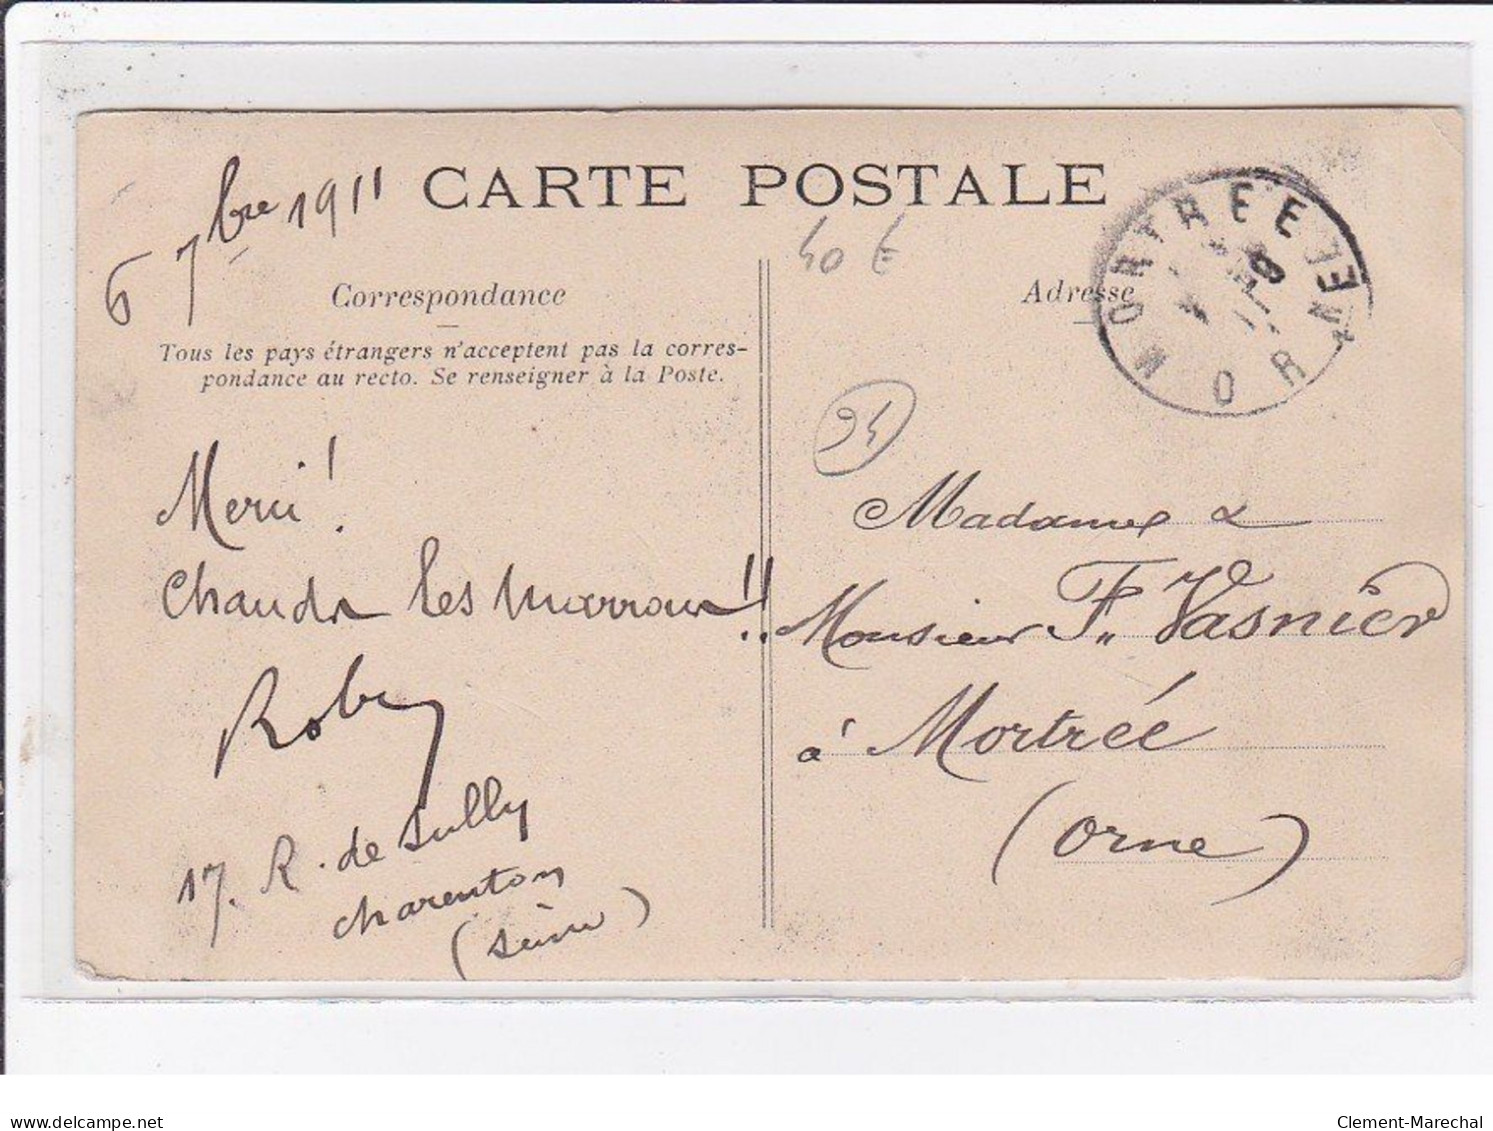 6 7bre 1911
CARTE POSTALE
40 €
Correspondance
Adresse
Tous les pays étrangers n'acceptent pas la corres-
pondance au recto. Se renseigner à la Poste.
MORTRÉE
ORNE
94
Merci !
Chauds les marrons !!
17. R. de Sully
Charenton
(Seine)
Madame &
Monsieur F. Vasnier
à Mortrée
(Orne)
delcampe.net
Clement-Marechal